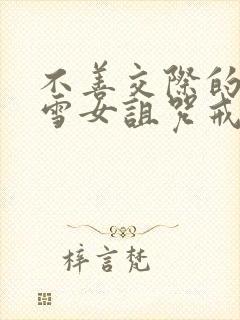 不善交际的
雪女诅咒戒
梓言梵